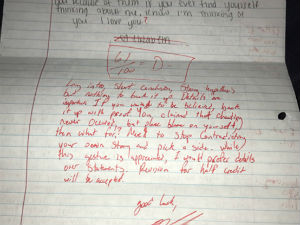 you because of them if you ever find yourself
thinking about me, know I'm thinking of
you. I love you?
61/100 = D-
Long intro, Short Conclusion, Strong hypothesis
but nothing to back it up. Details are
important. If you want to be believed, back
it up with proof. You claimed that cheating
never occurred, but place blame on yourself,
then what for? Need to stop contradicting
your own story and pick a side. While
this gesture is appreciated, I would prefer details
over statements. Revision for half credit
will be accepted.
Good Luck,